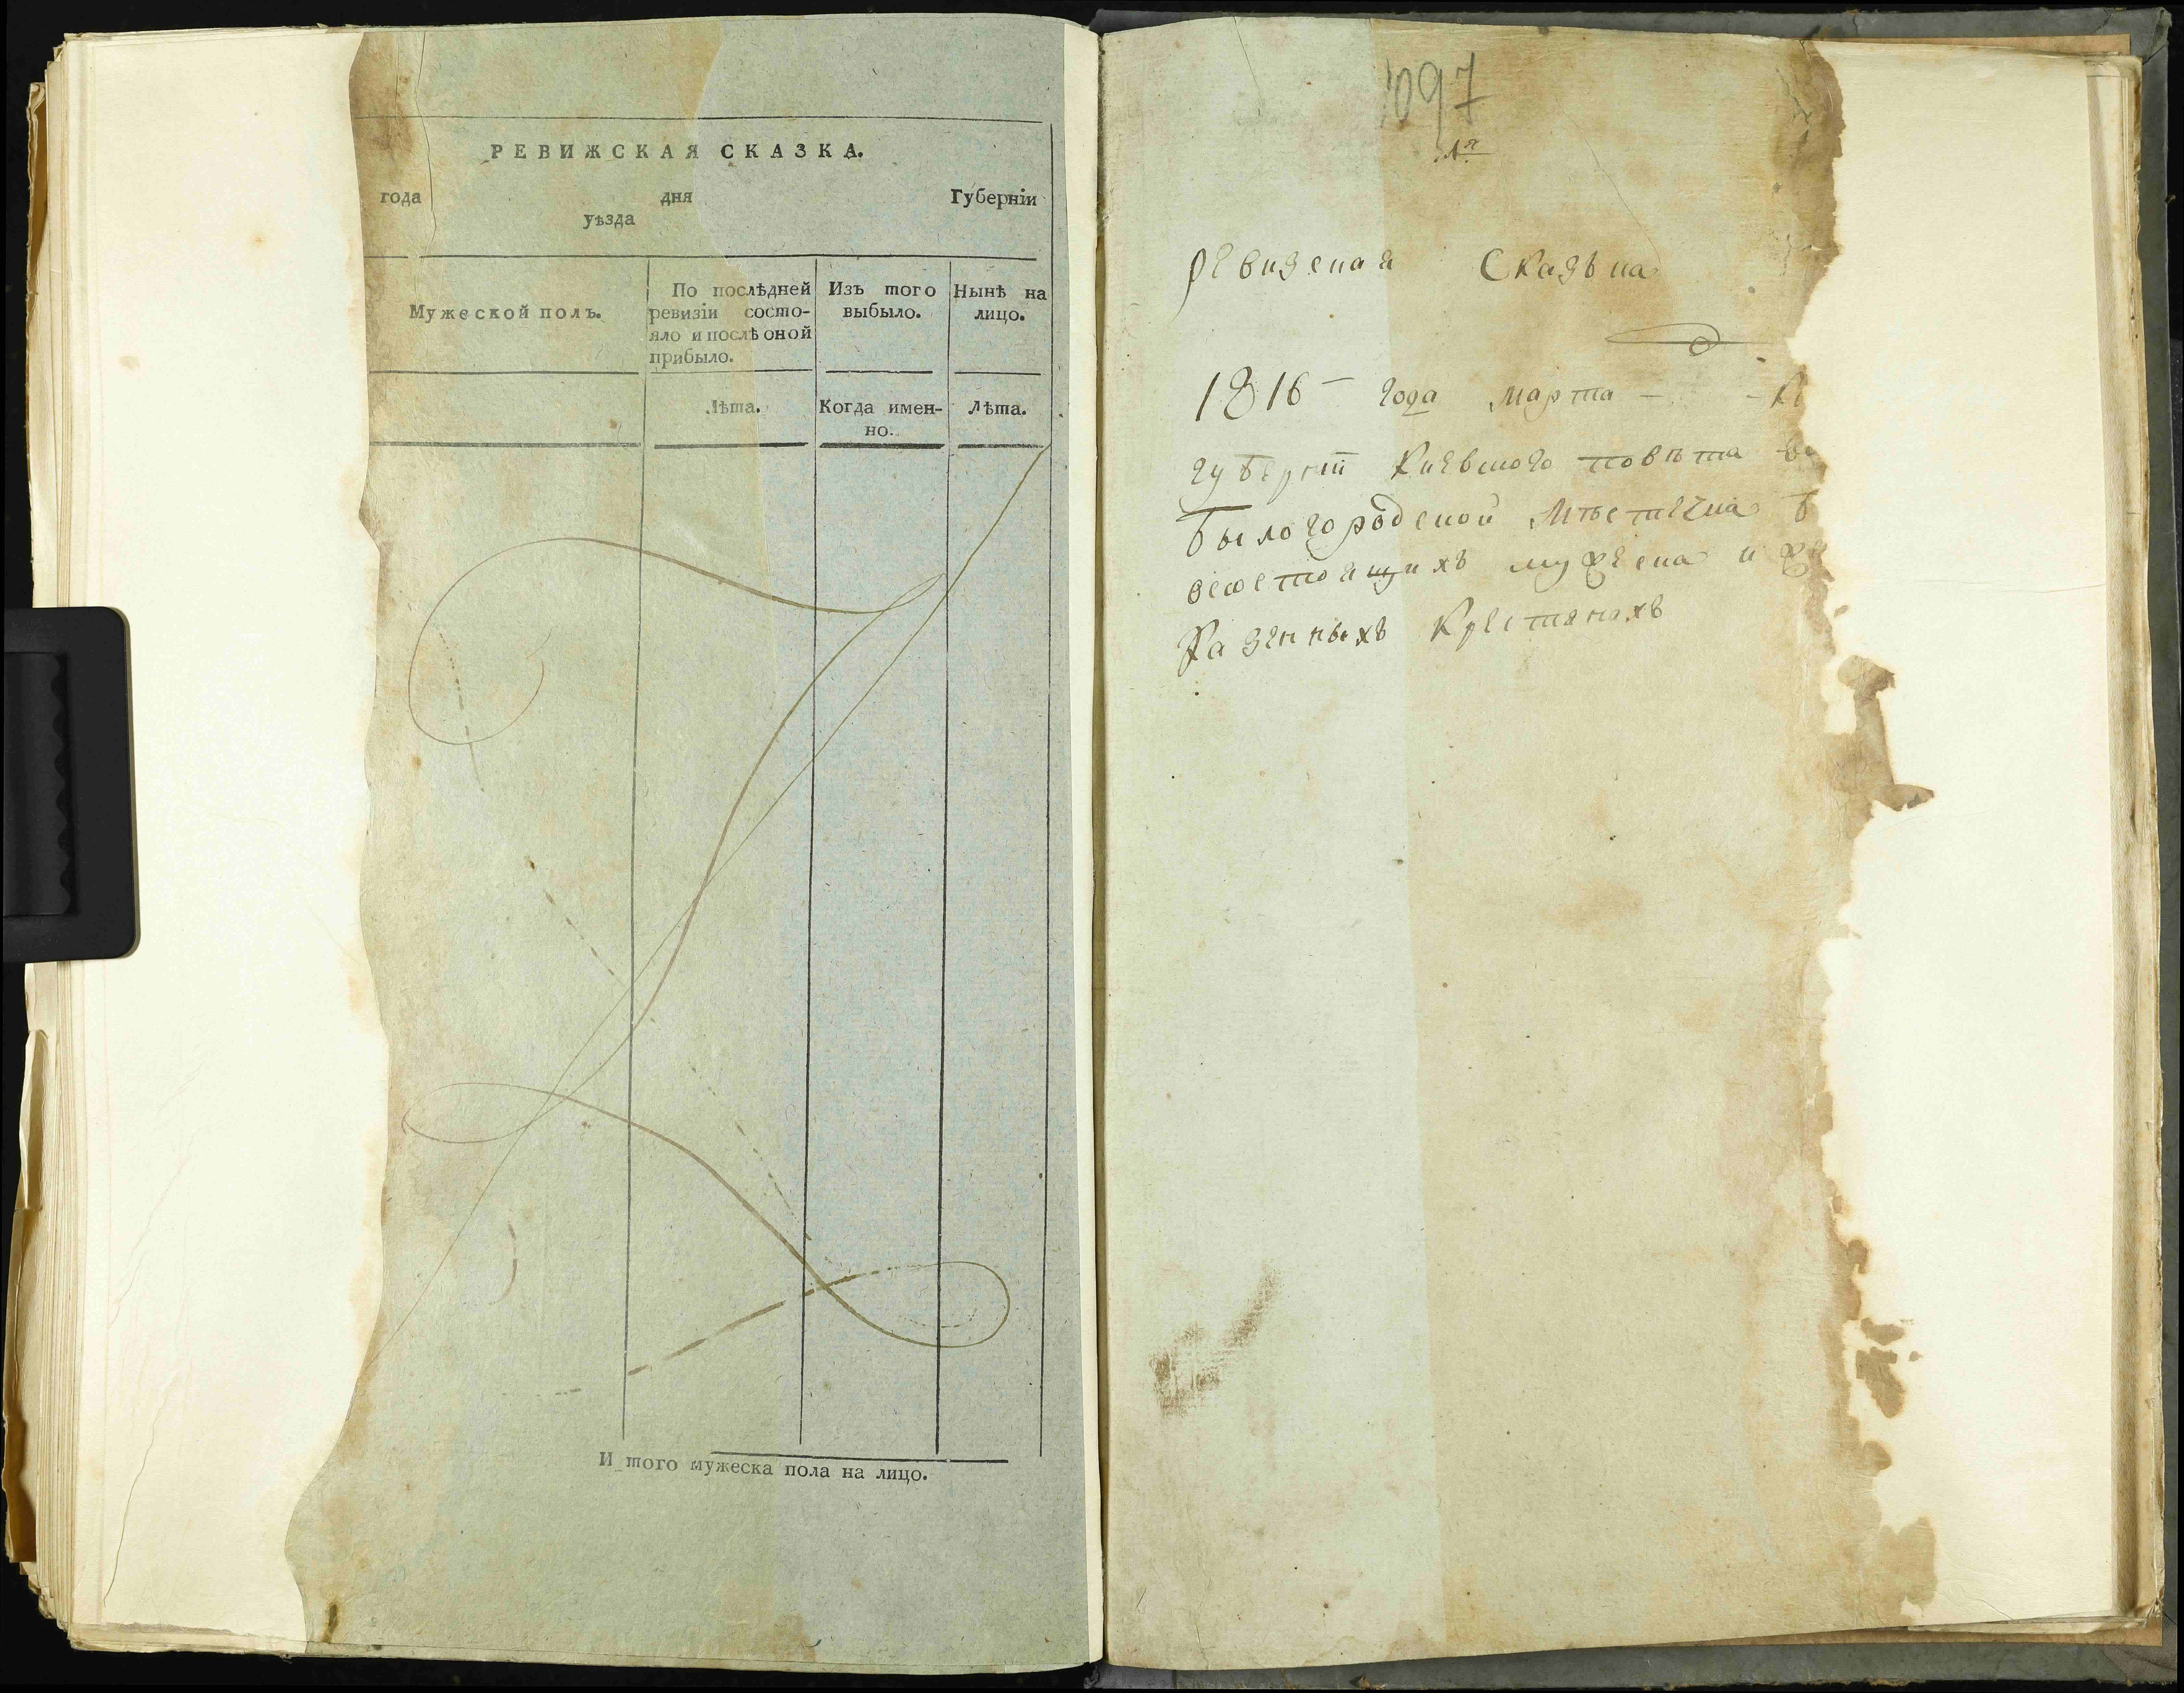 РЕВИЖСКАЯ СКАЗКА.
года дня Губернїи
уѣзда
Мужеской полъ.
По послѣдней ревизїи состояло и послѣ оной прибыло.
Изъ того выбыло.
Нынѣ на лицо.
Лѣта.
Когда именно.
Лѣта.
И того мужеска пола на лицо.
1097
ревизская Сказька
1816 – года марта – – К
губернїи Киевского повѣта
былогородской Мѣстечка Б
состоящихъ мужеска и же
Казенныхъ Крестянахъ